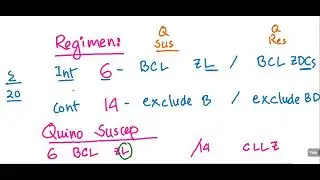 Q Q
Regimen: Sus Res
Σ Int 6 - BCL ZL / BCL ZDCs
20 cont 14 - exclude B / exclude BD
Quino Suscep
6 BCL ZL /14 CLLZ